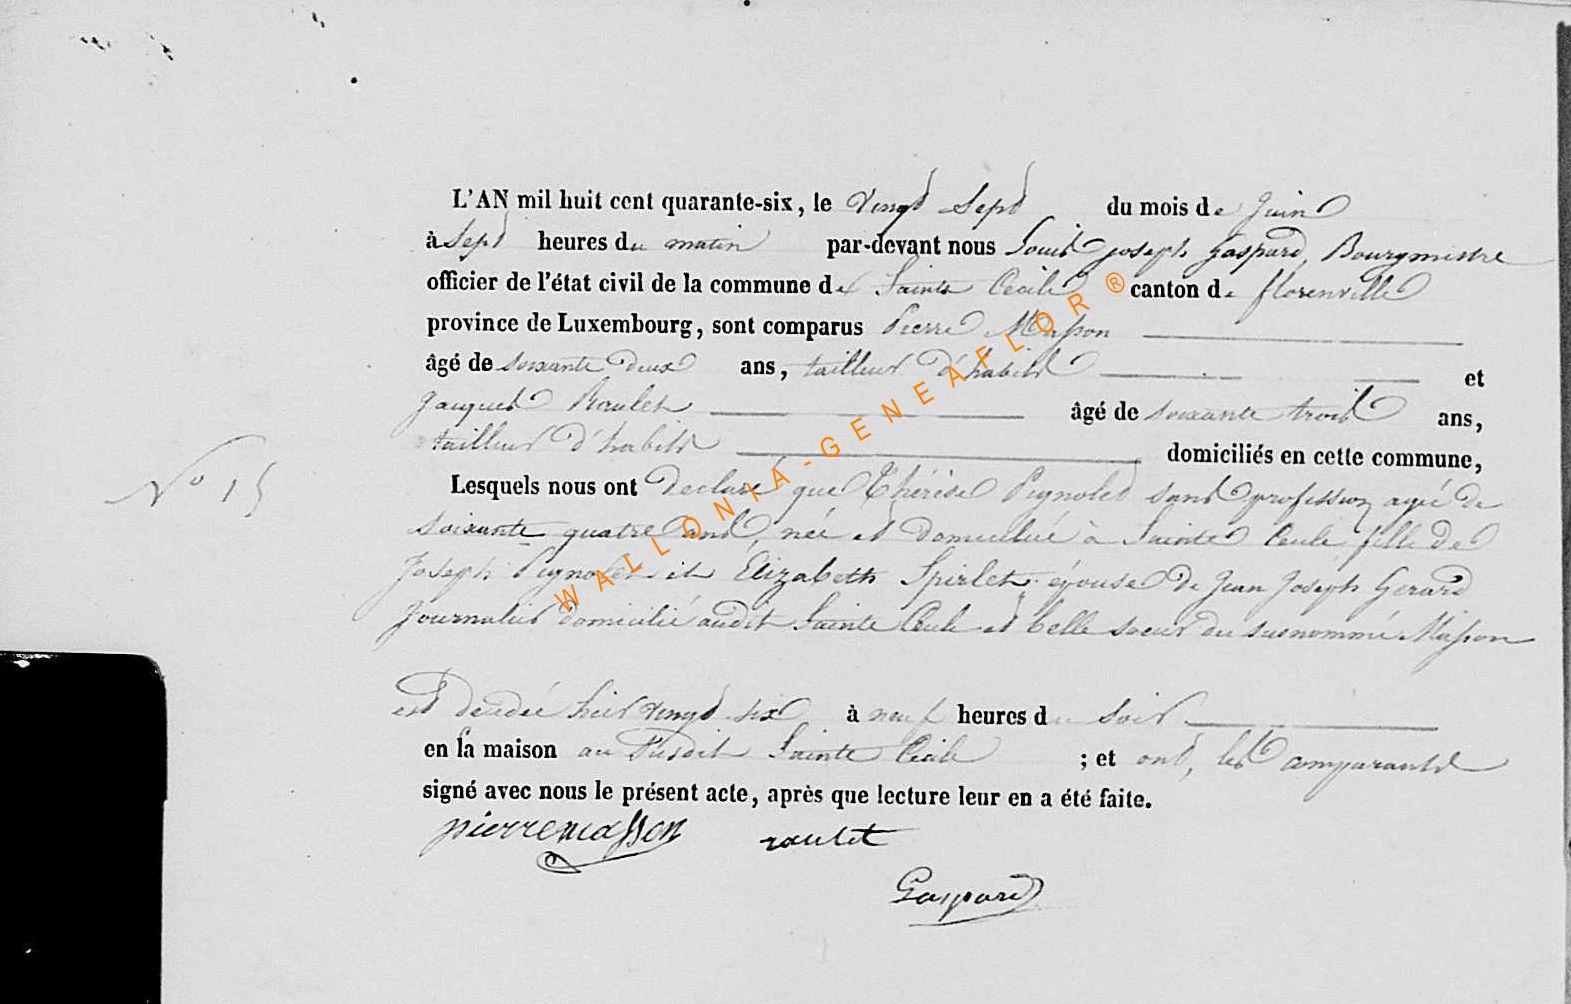 L'AN mil huit cent quarante-six, le Vingt Sept du mois de Juin
à Sept heures du matin par-devant nous Louis Joseph Gaspard, Bourgmestre
officier de l'état civil de la commune de Sainte Cécile canton de florenville
province de Luxembourg, sont comparus Pierre Masson
âgé de soixante deux ans, tailleur d'habits et
Jacques Raulet âgé de soixante trois ans,
tailleur d'habits domiciliés en cette commune,
N° 15
Lesquels nous ont déclaré que Thérèse Pignolet sans profession agée de
soixante quatre ans, née et domiciliée à Sainte Cecile fille de
Joseph Pignolet et Elizabeth Spirlet épouse de Jean Joseph Gerard
Journalier domicilié audit Sainte Cecile et belle soeur du susnommé Masson
est décédée hier vingt six à neuf heures du soir
en la maison au Susdit Sainte Cécile ; et ont, les comparants
signé avec nous le présent acte, après que lecture leur en a été faite.
pierre masson raulet
Gaspard
WALLONIA-GENEAFLOR ®